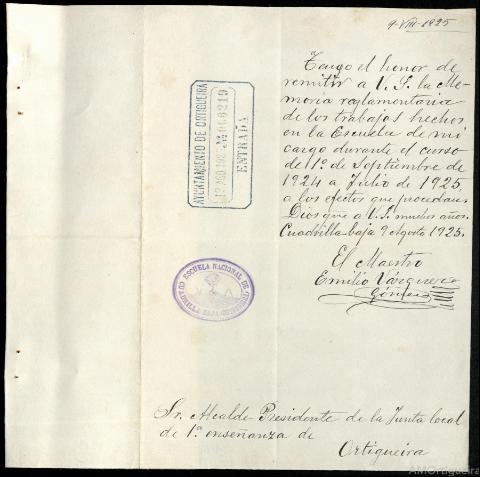 9-VIII-1925
Tengo el honor de
remitir a V. S. la Me-
moria reglamentaria
de los trabajos hechos
en la Escuela de mi
cargo durante el curso
de 1º de Septiembre de
1924 a Julio de 1925
a los efectos que procedan.
Dios gue a V. S. muchos años.
Cuadrilla-baja 9 Agosto 1925.
El Maestro
Emilio Vázquez
Gómez
AYUNTAMIENTO DE ORTIGUEIRA
12 AGO 192
ENTRADA
ESCUELA NACIONAL DE
CUADRILLA BAJA (ORTIGUEIRA)
Sr. Alcalde-Presidente de la Junta local
de 1ª enseñanza de
Ortigueira
AMOrtigueira